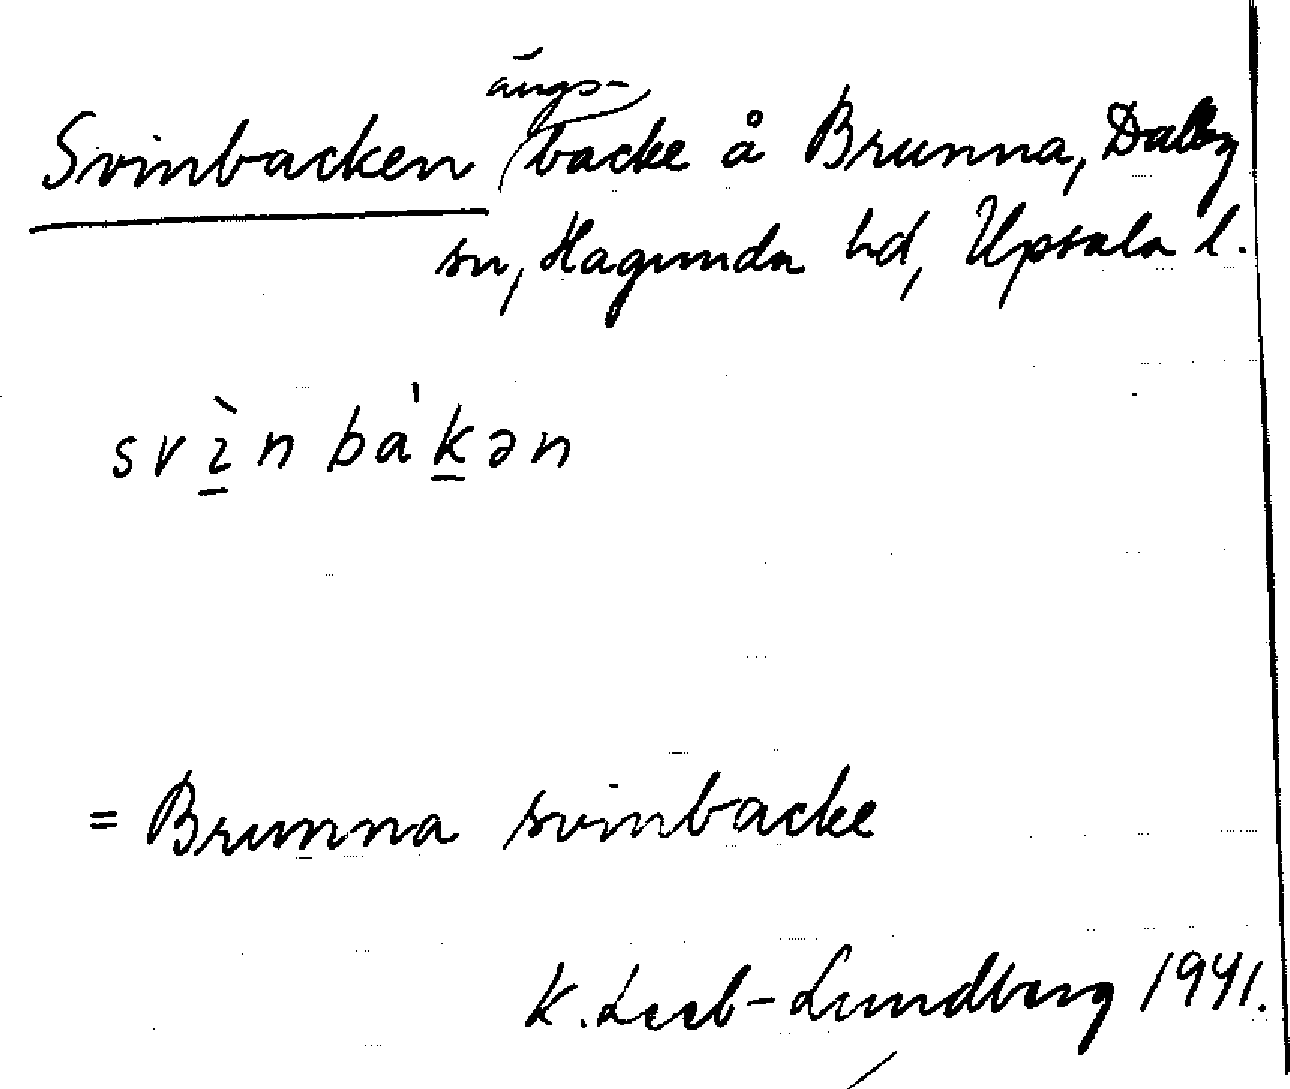 Svinbacken ängs-backe å Brunna, Dalby
sn, Hagunda hd, Upsala l.
svì̱n bàˈḵən
= Brunna svinbacke
K. Leeb-Lundberg 1941.